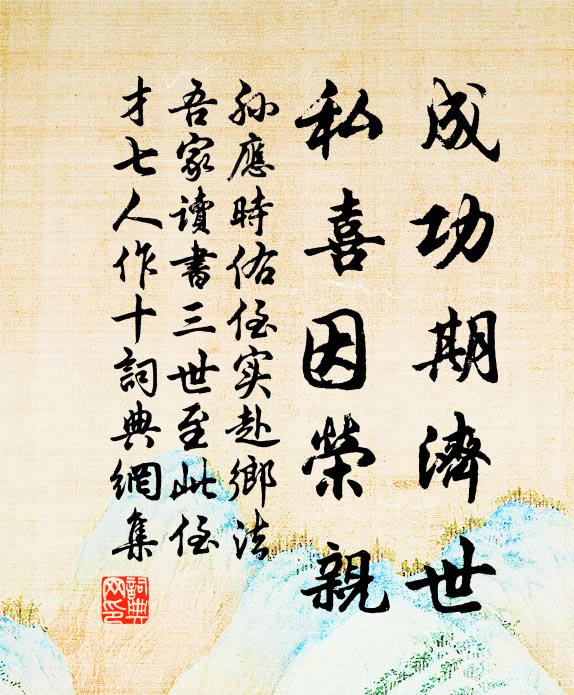 成功期濟世
私喜因榮親
孫應時佑侄实赴鄉法
吾家讀書三世至此侄
才七人作十詞典網集
詞典